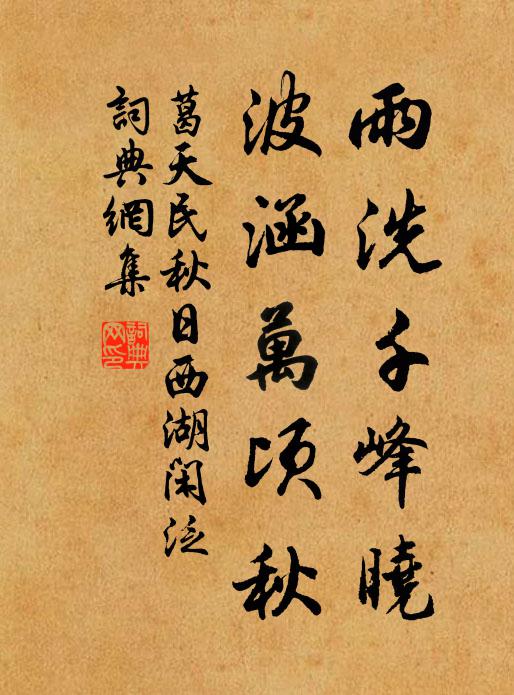 雨洗千峰曉
波涵萬頃秋
葛天民秋日西湖闲泛
詞典網集
詞典网印